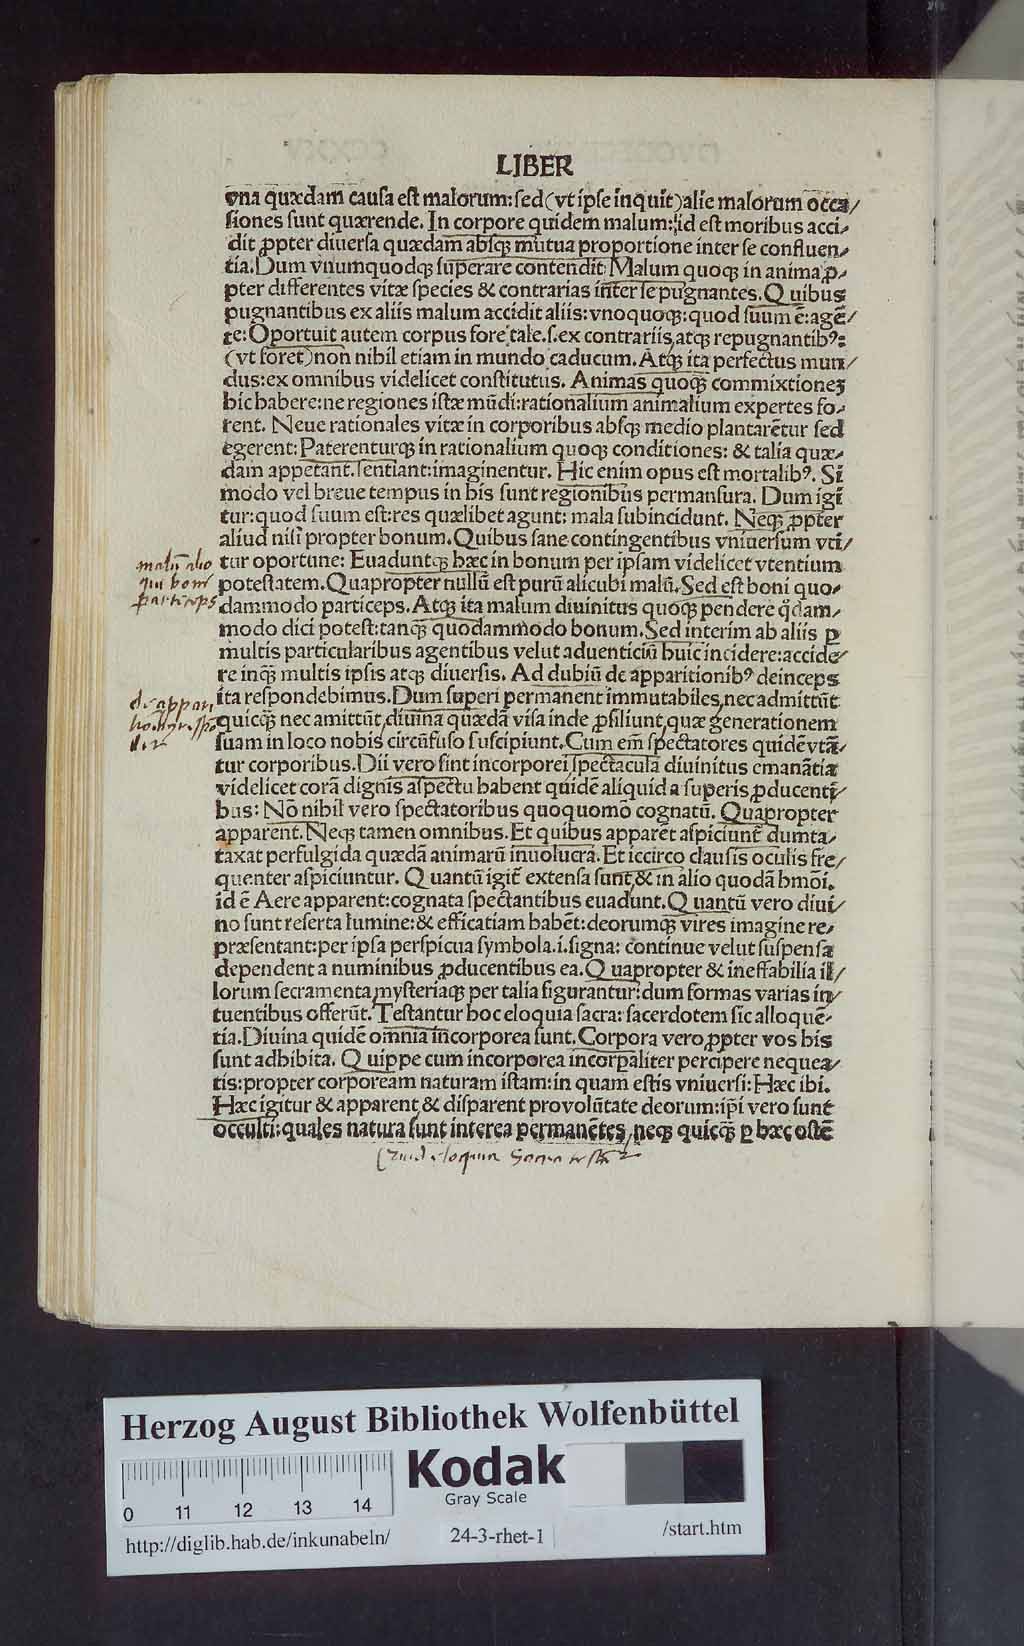 LIBER
vna quædam causa est malorum: sed (vt ipse inquit) alie malorum occa/
siones sunt quærende. In corpore quidem malum: id est moribus acci/
dit ꝓpter diuersa quædam absq; mutua proportione inter se confluen/
tia. Dum vnumquodq; superare contendit. Malum quoq; in anima ꝓ/
pter differentes vitæ species & contrarias inter se pugnantes. Quibus
pugnantibus ex aliis malum accidit aliis: vnoquoq; : quod suum ē: agē/
te: Oportuit autem corpus fore tale. s. ex contrariis atq; repugnantibꝰ:
(vt foret) non nihil etiam in mundo caducum. Atq; ita perfectus mun/
dus: ex omnibus videlicet constitutus. Animas quoq; commixtioneʒ
hic habere: ne regiones istæ mūdi: rationalium animalium expertes fo/
rent. Neue rationales vitæ in corporibus absq; medio plantarētur sed
egerent: Paterenturq; in rationalium quoq; conditiones: & talia quæ/
dam appetant. sentiant: imaginentur. Hic enim opus est mortalibꝰ. Si
modo vel breue tempus in his sunt regionibus permansura. Dum igi
tur: quod suum est: res quælibet agunt: mala subincidunt. Neq; ꝓpter
aliud nisi propter bonum. Quibus sane contingentibus vniuersum vti/
tur oportune: Euaduntq; hæc in bonum per ipsam videlicet vtentium
potestatem. Quapropter nullū est purū alicubi malū. Sed est boni quo/
dammodo particeps. Atq; ita malum diuinitus quoq; pendere q̊dam/
modo dici potest: tanq̄ quodammodo bonum. Sed interim ab aliis ꝑ
multis particularibus agentibus velut aduenticiū huic incidere: accide/
re inq̄ multis ipsis atq; diuersis. Ad dubiū de apparitionibꝰ deinceps
ita respondebimus. Dum superi permanent immutabiles, nec admittūt
quicq̄ nec amittūt, diuina quædā visa inde ꝓsiliunt, quæ generationem
suam in loco nobis circūfuso suscipiunt. Cum em̄ spectatores quidē vtā/
tur corporibus. Dii vero sint incorporei, spectacula diuinitus emanātia
videlicet corā dignis aspectu habent quidē aliquid a superis ꝓducenti/
bus: Nō nihil vero spectatoribus quoquomō cognatū. Quapropter
apparent. Neq; tamen omnibus. Et quibus apparēt aspiciunt dumta/
taxat perfulgida quædā animarū inuolucra. Et iccirco clausis oculis fre/
quenter aspiciuntur. Quantū igit̄ extensa sunt, & in alio quodā hmōi.
id ē Aere apparent: cognata spectantibus euadunt. Quantū vero diui/
no sunt reserta lumine: & efficatiam habēt: deorumq; vires imagine re/
præsentant: per ipsa perspicua symbola. i. signa: continue velut suspensa
dependent a numinibus ꝓducentibus ea. Quapropter & ineffabilia il/
lorum secramenta mysteriaq; per talia figurantur: dum formas varias in/
tuentibus offerūt. Testantur hoc eloquia sacra: sacerdotem sic alloquē/
tia. Diuina quidē omnia incorporea sunt. Corpora vero ꝓpter vos his
sunt adhibita. Quippe cum incorporea incorꝑaliter percipere nequea/
tis: propter corpoream naturam istam: in quam estis vniuersi: Hæc ibi.
Hæc igitur & apparent & disparent provolūtate deorum: ip̄i vero sunt
occulti: quales natura sunt interea permanētes, neq; quicq̄ ꝑ hæc ostē
malū alio
qui boni
particeps
de appari
Herzog August Bibliothek Wolfenbüttel
Kodak
Gray Scale
0 11 12 13 14
http://diglib.hab.de/inkunabeln/ 24-3-rhet-1 /start.htm